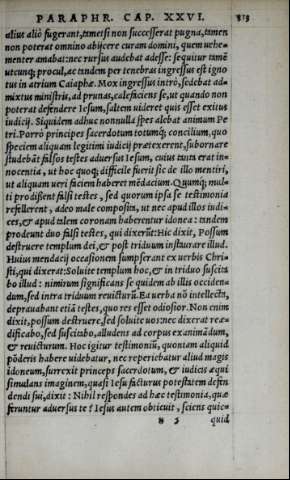 PARAPHR. CAP. XXVI. 813
alius aliò fugerant, tametsi non successerat pugna, tamen
non poterat omnino abijcere curam domini, quem uehe-
menter amabat: nec rursus audebat adesse: sequitur tamẽ
utcunq; procul, ac tandem per tenebras ingressus est igno
tus in atrium Caiaphæ. Mox ingressus intrò, sedebat ad-
mixtus ministris, ad prunas, calefaciens se, ut quando non
poterat defendere Iesum, saltem uideret quis esset exitus
iudicij. Siquidem adhuc nonnulla spes alebat animum Pe
tri. Porrò principes sacerdotum totumq; concilium, quo
speciem aliquam legitimi iudicij prætexerent, subornare
studebãt falsos testes aduersus Iesum, cuius tanta erat in-
nocentia, ut hoc quoq; difficile fuerit sic de illo mentiri,
ut aliquam ueri faciem haberet mẽdacium. Quumq; mul-
ti prodissent falsi testes, sed quorum ipsa se testimonia
refellerent, adeo male composita, ut nec apud illos iudi-
ces, & apud talem coronam haberentur idonea: tandem
prodeunt duo falsi testes, qui dixerũt: Hic dixit, Possum
destruere templum dei, & post triduum instaurare illud.
Huius mendacij occasionem sumpserant ex uerbis Chri-
sti, qui dixerat: Soluite templum hoc, & in triduo suscita
bo illud: nimirum significans se quidem ab illis occiden-
dum, sed intra triduum reuicturũ. Ea uerba nõ intellecta,
deprauabant etiã testes, quo res esset odiosior. Non enim
dixit, possum destruere, sed soluite uos: nec dixerat reæ-
dificabo, sed suscitabo, alludens ad corpus exanimãdum,
& reuicturum. Hoc igitur testimoniũ, quoniam aliquid
põderis habere uidebatur, nec reperiebatur aliud magis
idoneum, surrexit princeps sacerdotum, & iudicis æqui
simulans imaginem, quasi Iesu facturus potestatem defen
dendi sui, dixit: Nihil respondes ad hæc testimonia, quæ
feruntur aduersus te? Iesus autem obticuit, sciens quic-
quid